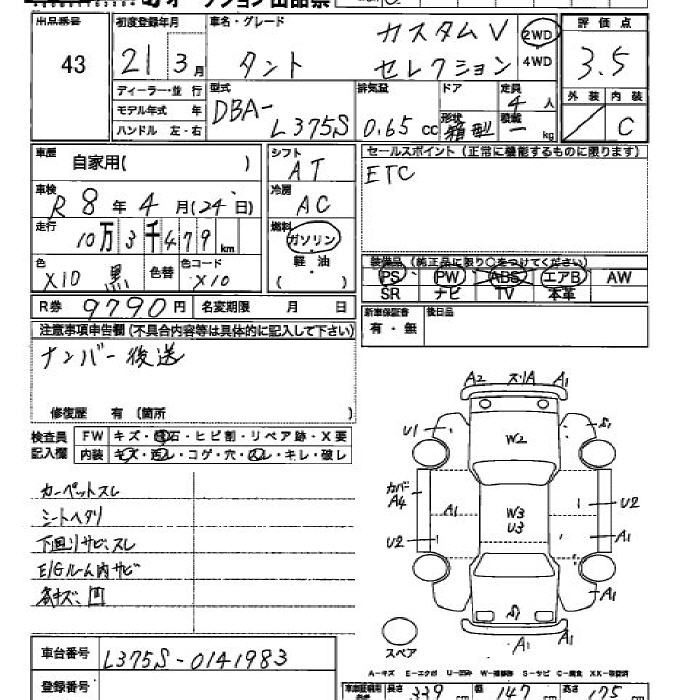 オークション出品票
出品番号 初度登録年月 車名・グレード カスタムV 2WD 評価点
43 21 3月 タント セレクション 4WD 3.5
ディーラー・並行 型式 排気量 ドア 定員 4人 外装 内装
モデル年式 年 DBA- 形状 積載
ハンドル 左・右 L375S 0.65cc 箱型 ー kg C
車歴 自家用( ) シフト AT セールスポイント(正常に機能するものに限ります)
車検 R8年4月(24日) 冷房 AC ETC
走行 10万3千479km 燃料 ガソリン
軽油
( )
色 X10 黒 色替 色コード X10 装備品(純正品に限り○をつけてください)
PS PW ABS エアB AW
R券 9790円 名変期限 月 日 SR ナビ TV 本革
注意事項申告欄(不具合内容等は具体的に記入して下さい) 新車保証書 後日品
有・無
ナンバー後送
修復歴 有(箇所 )
検査員 FW キズ・飛石・ヒビ割・リペア跡・X要
記入欄 内装 キズ・汚レ・コゲ・穴・スレ・キレ・破レ
カーペットスレ
シートヘタリ
下回りサビ、スレ
E/Gルーム内サビ
各キズ、凹
A2 スリA A1
U1 S1
W2
カバーA4 A1 W3 U3 U2
U2 A1
A1
S1
A1 A1
スペア
A-キズ E-エクボ U-凹み W-補修跡 S-サビ C-腐食 XX-交換済
車台番号 L375S-0141983 長さ 339cm 幅 147cm 高さ 175cm
登録番号